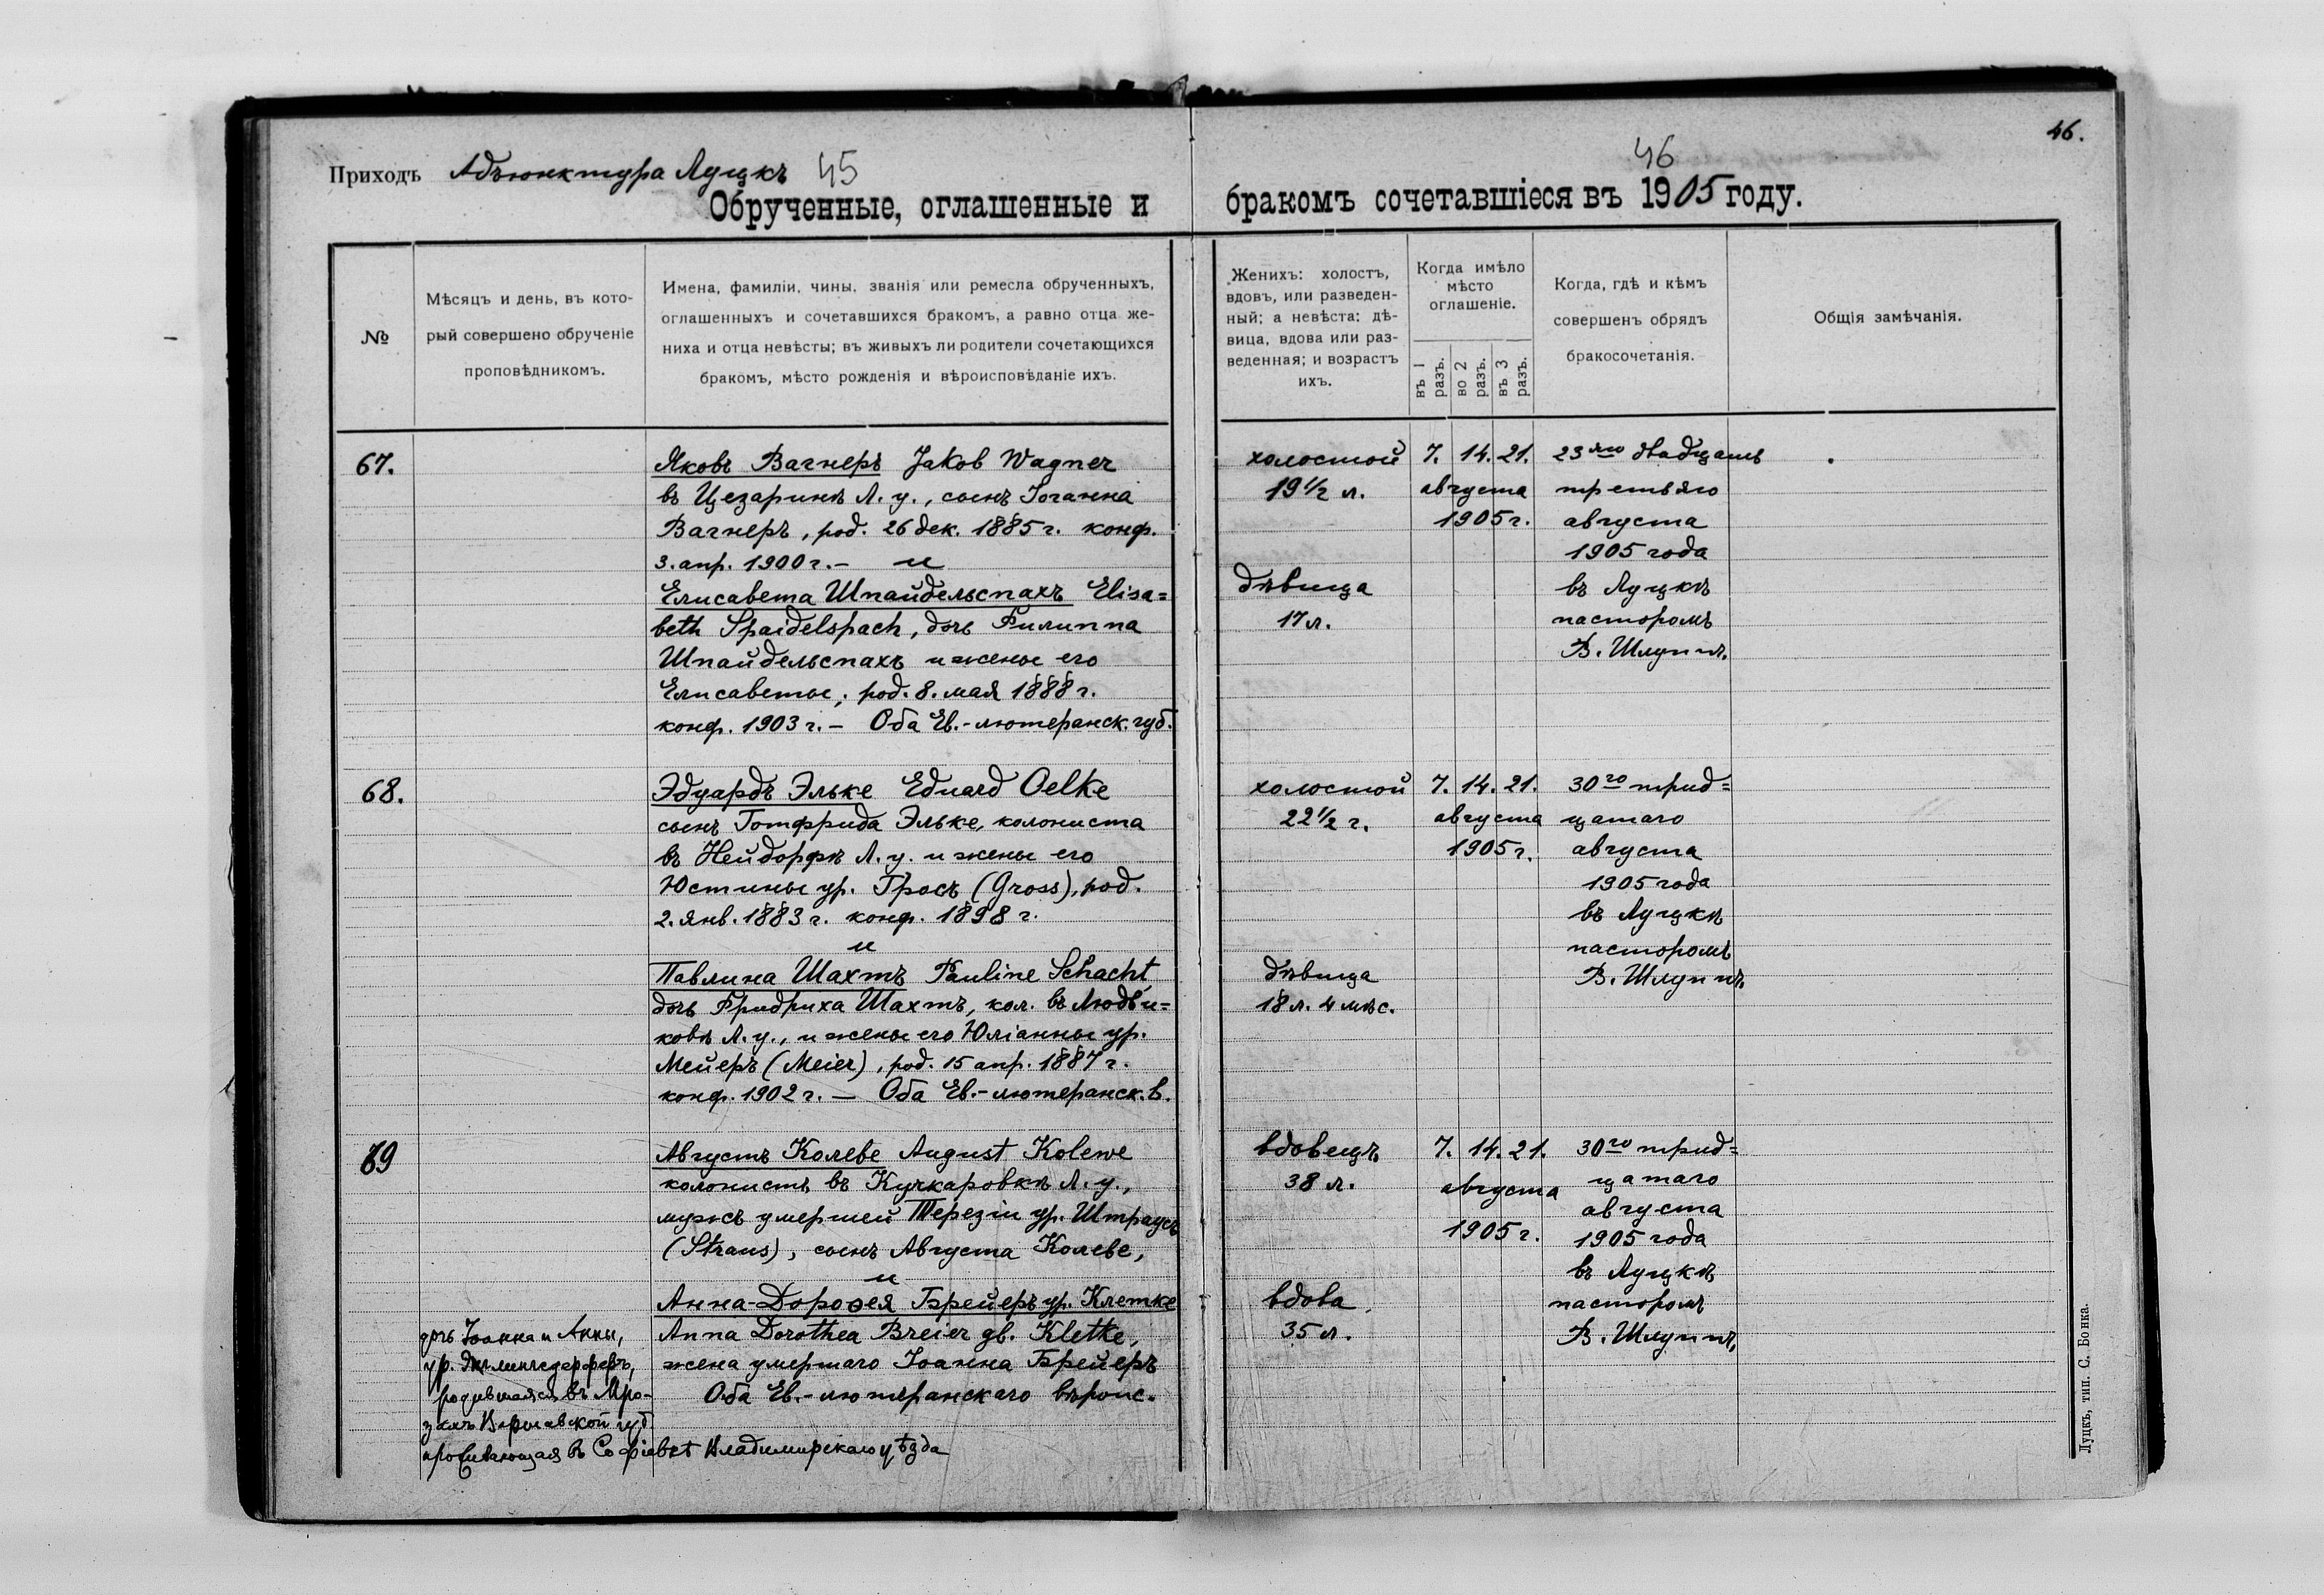 46.
Приходъ Адъюнктура Луцкъ 45
46
Обрученные, оглашенные и бракомъ сочетавшіеся въ 1905 году.
№
Мѣсяцъ и день, въ кото-
рый совершено обрученіе
проповѣдникомъ.
Имена, фамиліи, чины, званія или ремесла обрученныхъ,
оглашенныхъ и сочетавшихся бракомъ, а равно отца же-
ниха и отца невѣсты; въ живыхъ ли родители сочетающихся
бракомъ, мѣсто рожденія и вѣроисповѣданіе ихъ.
Женихъ: холостъ,
вдовъ, или разведен-
ный; а невѣста: дѣ-
вица, вдова или раз-
веденная; и возрастъ
ихъ.
Когда имѣло
мѣсто
оглашеніе.
въ 1 разъ.
во 2 разъ.
въ 3 разъ.
Когда, гдѣ и кѣмъ
совершенъ обрядъ
бракосочетанія.
Общія замѣчанія.
67.
Яковъ Вагнеръ Jakob Wagner
въ Цезаринѣ Л. у., сынъ Іоганна
Вагнеръ, род. 26 дек. 1885 г. конф.
3. апр. 1900 г. – и
Елисавета Шпайдельспахъ Elisa=
beth Spaidelspach, дочь Филиппа
Шпайдельспахъ и жены его
Елисаветы, род. 8. мая 1888 г.
конф. 1903 г. – Оба Ев.-лютеранск. губ.
холостой
19 1/2 л.
дѣвица
17 л.
7. 14. 21.
августа
1905 г.
23 яго двадцать
третьяго
августа
1905 года
въ Луцкѣ
пасторомъ
В. Шлуппъ.
68.
Эдуардъ Эльке Eduard Oelke
сынъ Готфрида Эльке, колониста
въ Нейдорфѣ Л. у. и жены его
Юстины ур. Гросъ (Gross), род.
2. янв. 1883 г. конф. 1898 г.
и
Павлина Шахтъ Pauline Schacht,
дочь Фридриха Шахтъ, кол. въ Людви=
ковѣ Л. у., и жены его Юліанны ур.
Мейеръ (Meier), род. 15 апр. 1887 г.
конф. 1902 г. — Оба Ев.-лютеранск. в.
холостой
22 1/2 г.
дѣвица
18 л. 4 мѣс.
7. 14. 21.
августа
1905 г.
30 го трид=
цатаго
августа
1905 года
въ Луцкѣ
пасторомъ
В. Шлуппъ.
69
Августъ Колеве August Kolewe
колонистъ въ Кучкаровкѣ Л. у.,
мужъ умершей Терезіи ур. Штраусъ
(Straus), сынъ Августа Колеве,
и
Анна-Дороѳея Брейеръ ур. Клетке
Anna Dorothea Breier gb. Kletke,
жена умершаго Іоанна Брейеръ
Оба Ев.-лютеранскаго вѣроис.
дочь Іоанна и Анны,
ур.
родившаяся въ Мро-
захъ Варшавской губ
проживающая въ Софіевкѣ Владимирскаго уѣзда
вдовецъ
38 л.
вдова
35 л.
7. 14. 21.
августа
1905 г.
30 го трид=
цатаго
августа
1905 года
въ Луцкѣ
пасторомъ
В. Шлуппъ,
Луцкъ, тип. С. Бонка.